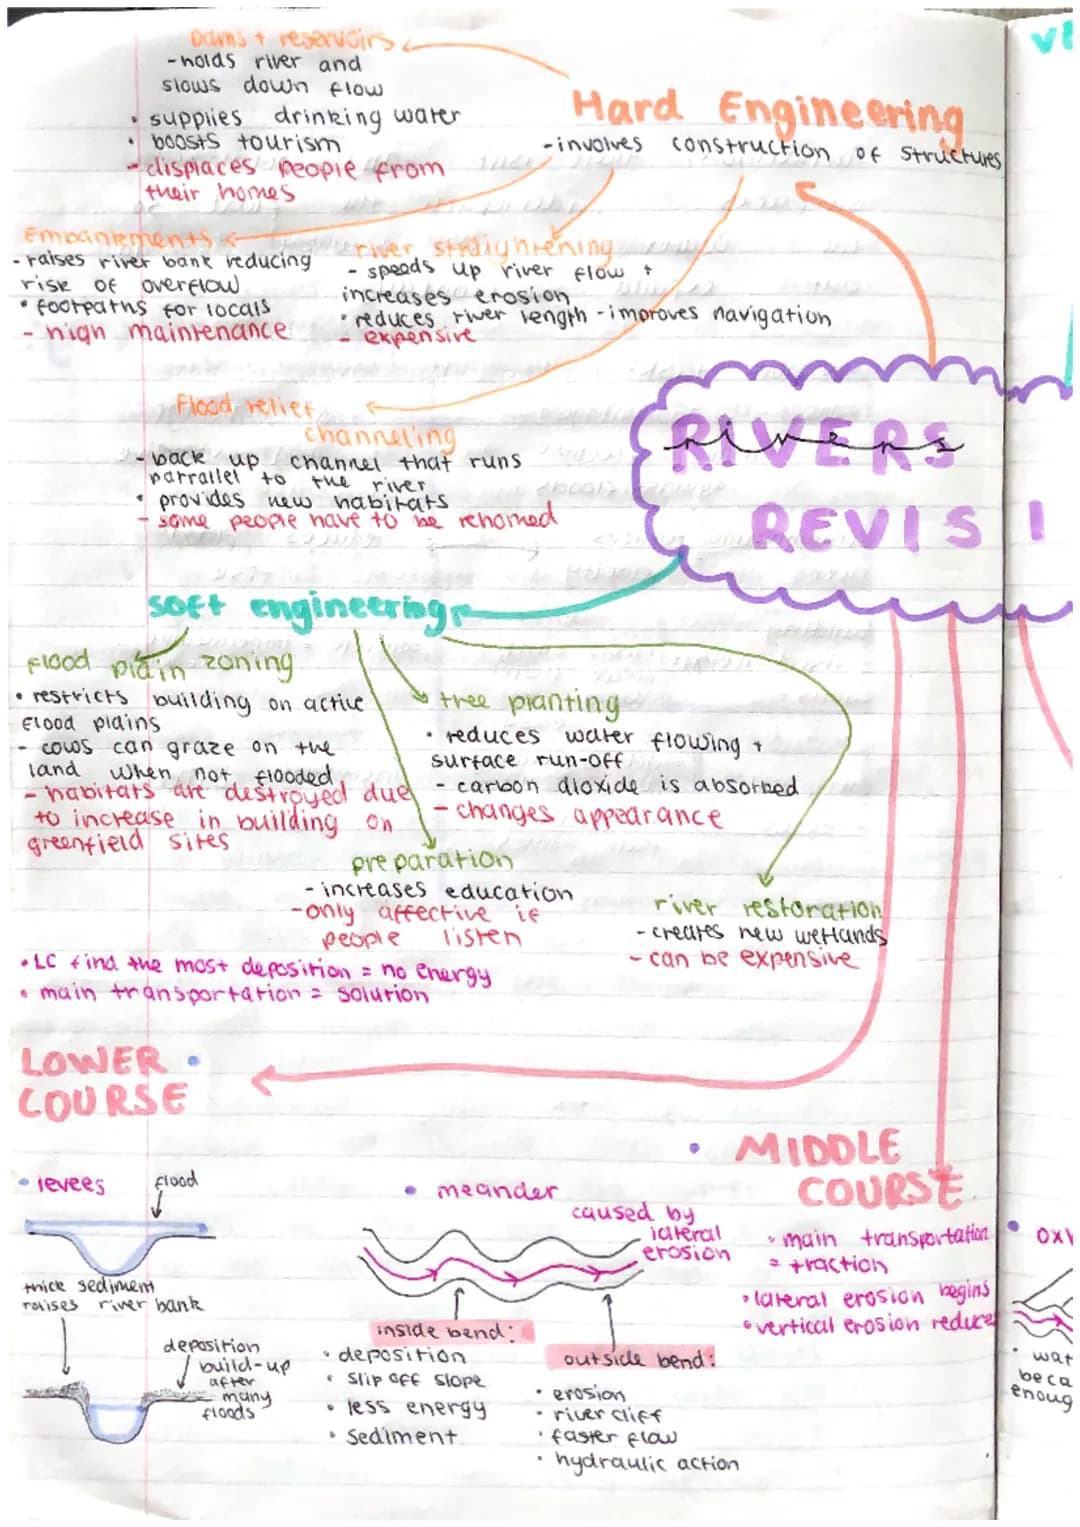 Dams + reservoirs
- holds river and
slows down flow
• supplies drinking water
• boosts tourism
- displaces people from
their homes
Hard Engineering
- involves construction of structures
Embankements
- raises river bank reducing
risk of overflow
• footpaths for locals
- high maintenance
river straightening
- speeds up river flow +
increases erosion
• reduces river length - improves navigation
- expensive
Flood relief
channeling
- back up channel that runs
parrallel to the river
• provides new habitats
- some people have to be rehomed
RIVERS
rivers
REVISI
soft engineering
flood plain zoning
• restricts building on active
flood plains
- cows can graze on the
land when not flooded
- habitats are destroyed due
to increase in building on
greenfield sites
tree planting
• reduces water flowing +
surface run-off
- carbon dioxide is absorbed
- changes appearance
preparation
- increases education
- only affective if
people listen
river restoration
- creates new wetlands
- can be expensive
• LC find the most deposition = no energy
• main transportation = solution
LOWER
COURSE
• levees
flood
thick sediment
raises river bank
deposition
build-up
after
many
floods
• meander
caused by
lateral
erosion
inside bend:
• deposition
• slip off slope
• less energy
• sediment
outside bend:
• erosion
• river cliff
• faster flow
• hydraulic action
• MIDDLE
COURSE
• main transportation
= traction
• lateral erosion begins
• vertical erosion reduces
• wat
beca
enoug